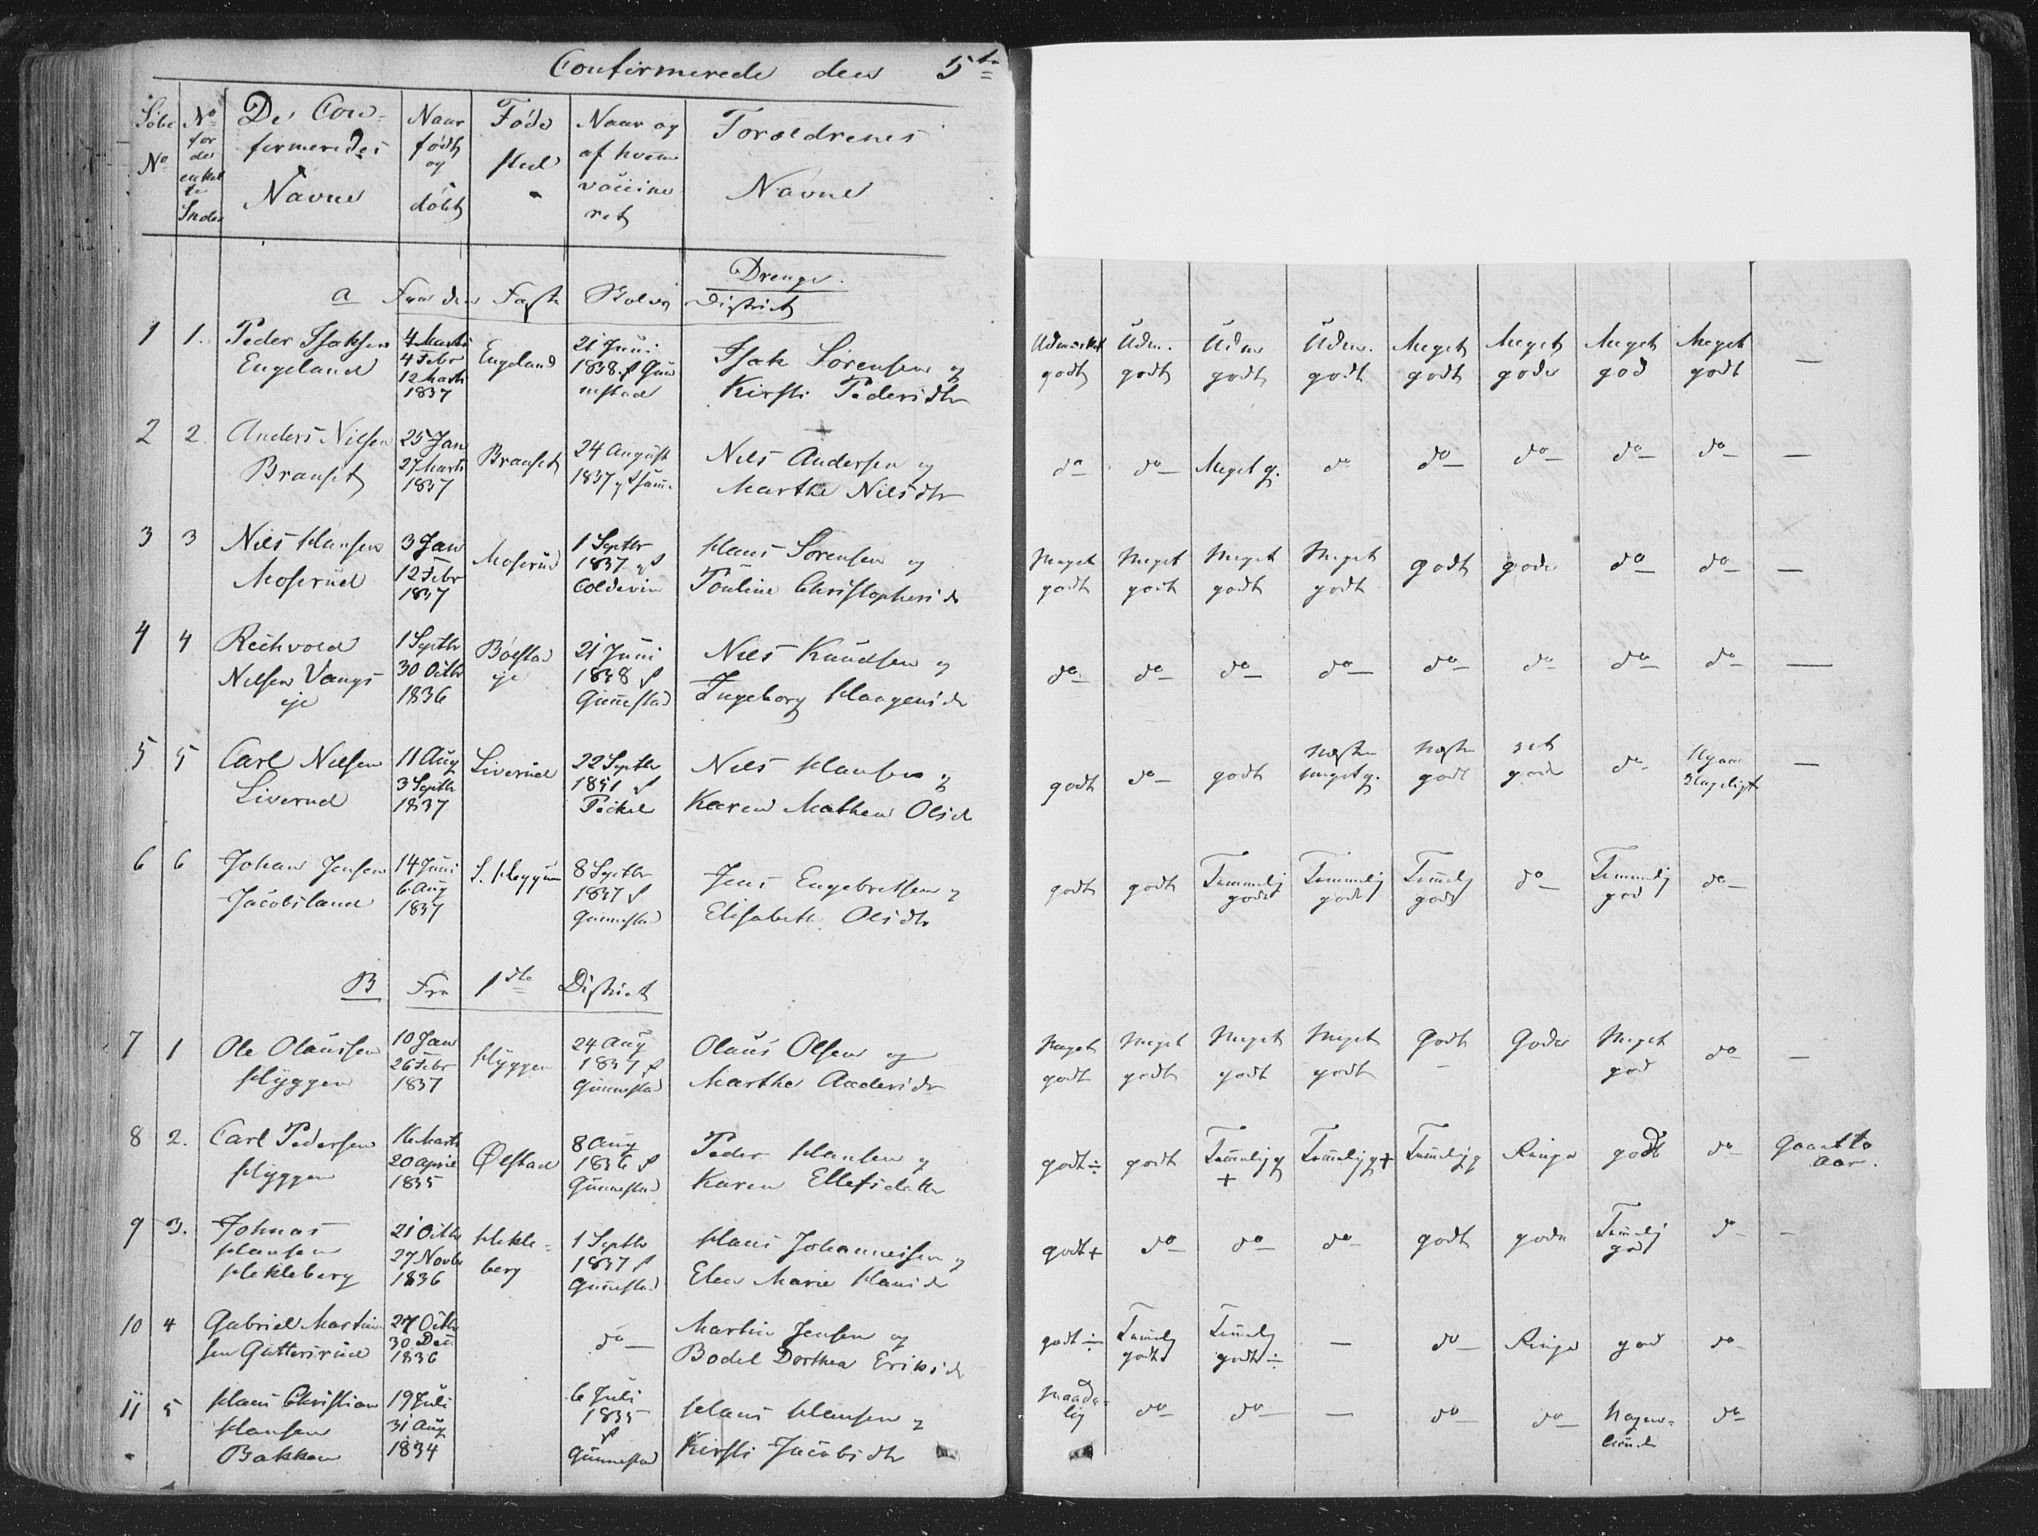 Confirmerede den 5te
Løbe No
No for de enkelte Snder
De Con-
firmeredes
Navne
Naar
født
og
døbt
Føde
sted
Naar og
af hvem
vaccine
ret
Forældrenes
Navne
Drenge.
a Fra den Faste Skoles District
1 1. Peder Isaksen
Engeland
4 Marts
4 Febr
12 Marts
1837
Engeland
21 Juni
1838 af Gun
nestad
Isak Sørensen og
Kirsti Pedersdtr
Udmærket
godt
Udm.
godt
Udm
godt
Udm.
godt
Meget
godt
Meget
gode
Meget
god
Meget
godt
—
2 2. Anders Nilsen
Branset
25 Jan
27 Marts
1837
Branset
24 August
1837 af samme
Nils Andersen og
Marthe Nilsdtr
do do— Meget g. do do— do— do— do— —
3 3 Nils Hansen
Moserud
3 Jan
12 Febr
1837
Moserud
1 Septbr
1837 af
Coldevin
Hans Sørensen og
Pouline Christophersdr
Meget
godt
Meget
godt
Meget
godt
Meget
godt
godt gode do— do— —
4 4 Reihvold
Nilsen Vangs
eje
1 Septbr
30 Octbr
1836
Bølstad
eje
21 Juni
1838 af
Gunnestad
Nils Knudsen og
Ingeborg Haagensdr
do— do— do— do— do— do— do— do— —
5 5 Carl Nilsen
Liverud
11 Aug
3 Septbr
1837
Liverud
22 Septbr
1851 af
Peckel
Nils Hansen og
Karen Mathea Olsdr
godt do— godt
næsten
meget g.
næsten
godt
ret
gode
do— —
6 6 Johan Jensen
Jacobsland
14 Juni
6 Aug
1837
S. Høggum
8 Septbr
1837 af
Gunnestad
Jens Engebretsen og
Elisabeth Olsdtr
godt godt
Temmelig
godt
Temmelig
godt
Temelig
godt
do—
Temmelig
god
do—
B Fra 1ste District
7 1 Ole Olaussen
Hyggen
10 Jan
26 Febr
1837
Hyggen
24 Aug
1837 af
Gunnestad
Olaus Olsen og
Marthe Andersdr
Meget
godt
Meget
godt
Meget
godt
Meget
godt
Godt Gode
Meget
god
do —
8 2. Carl Pedersen
Hyggen
16 Marts
20 April
1835
Ølstad
8 Aug
1836 af
Gunnestad
Peder Hansen og
Karen Ellefsdatter
godt ÷ godt Temelig g
+
Temelig g+ Temelig g Ringe godt do Gaaet to
Aar.
9 3. Johnas
Hansen
Hekleberg
21 Octbr
27 Novbr
1836
Hekle-
berg
1 Septbr
1837 af
Gunnestad
Hans Johannessen og
Elen Marie Hansdr
godt+ do— do— do— godt gode
Temelig
god
do— —
10 4 Gabriel Martin
sen Guttersrud
27 Octbr
30 Dec
1836
do—
Martin Jensen og
Bodel Dorthea Eriksdr
godt ÷
Temelig
godt
Temelig
godt ÷
— do— Ringe god do—
11 5 Hans Christian
Hansen
Bakken
19 Juli
31 Aug
1834
6 Juli
1835
af
Gunnestad
Hans Hansen og
Kirsti Jacobsdtr
Maade-
lig
do— do— — do— do— do—